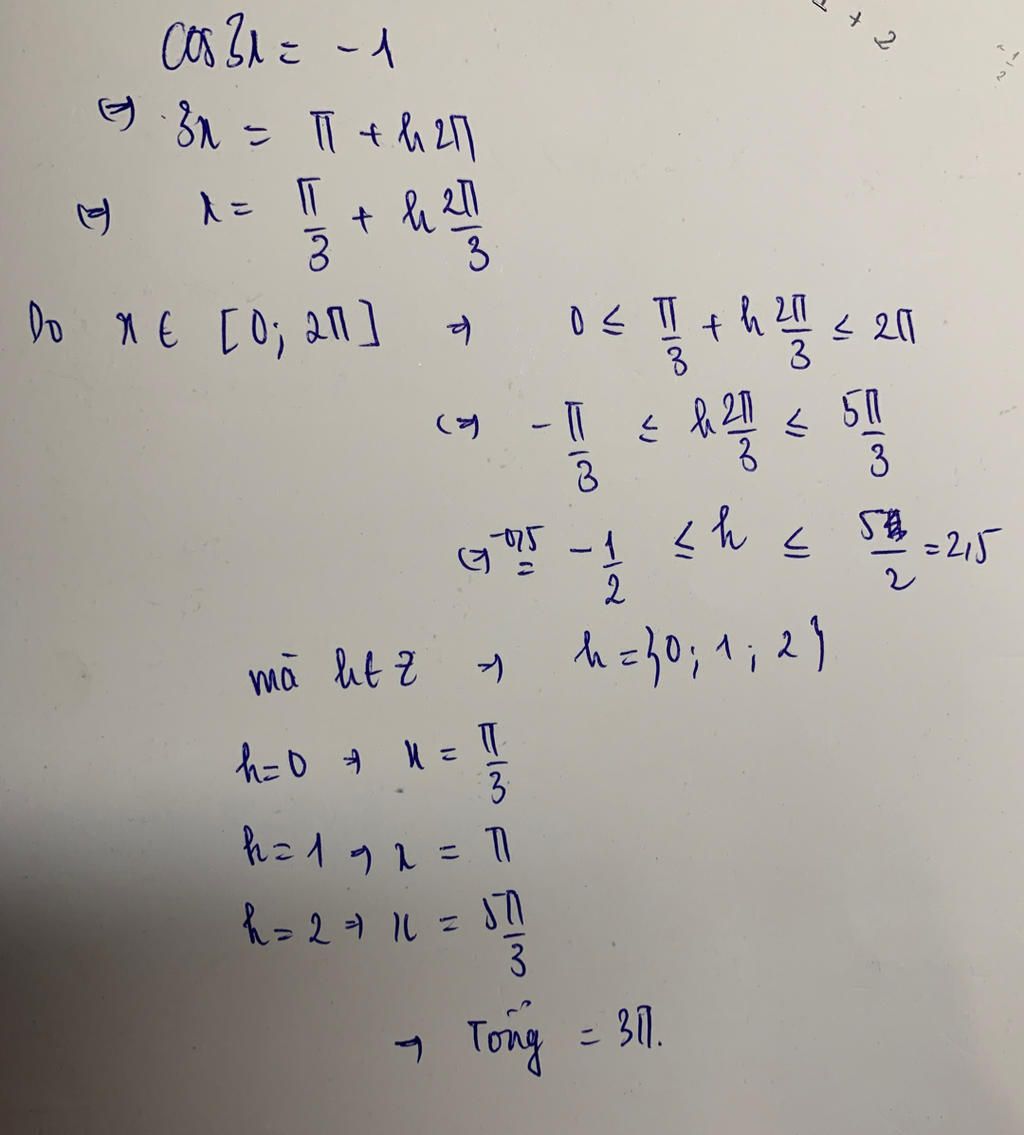 cos3x = -1
⇔ 3x = π + k2π
⇔ x = π/3 + k 2π/3
Do x ∈ [0; 2π] ⇒ 0 ≤ π/3 + k 2π/3 ≤ 2π
⇔ -π/3 ≤ k 2π/3 ≤ 5π/3
⇔ -0,5 = -1/2 ≤ k ≤ 5/2 = 2,5
mà k ∈ Z ⇒ k = {0; 1; 2}
k = 0 ⇒ x = π/3
k = 1 ⇒ x = π
k = 2 ⇒ x = 5π/3
⇒ Tổng = 3π.